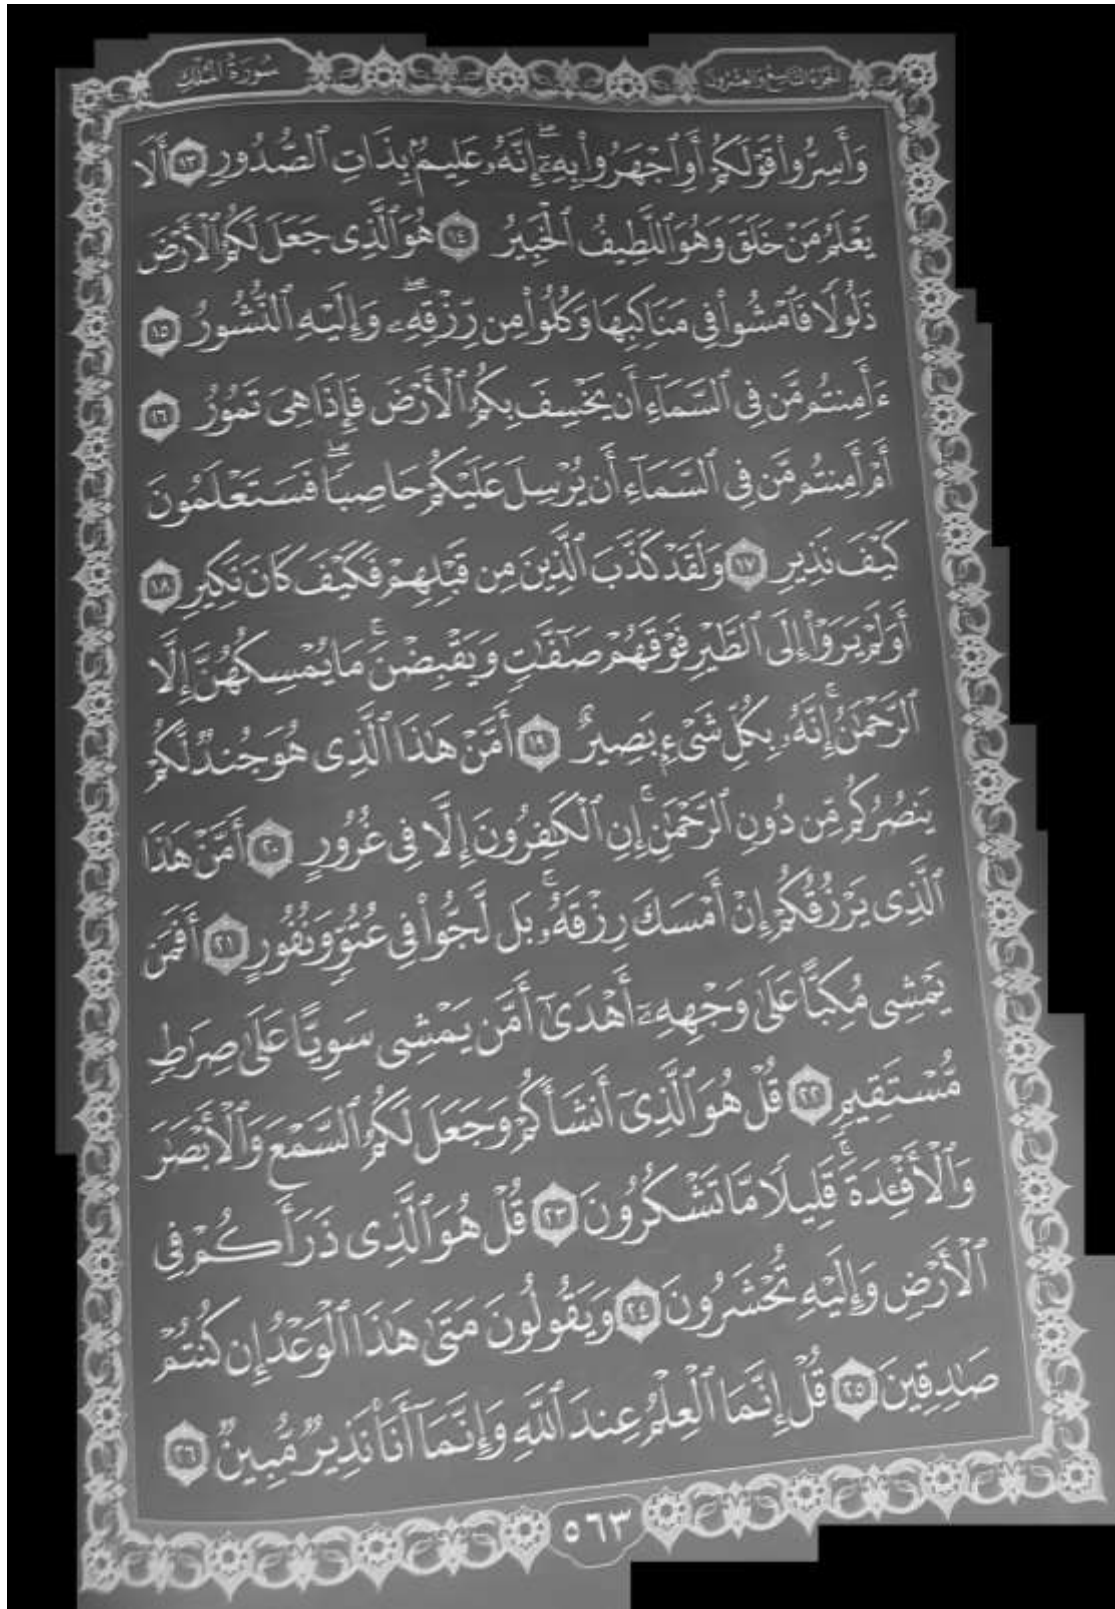 الجزء التاسع والعشرون
سورة الملك
وَأَسِرُّوا۟ قَوْلَكُمْ أَوِ ٱجْهَرُوا۟ بِهِۦٓ ۖ إِنَّهُۥ عَلِيمٌۢ بِذَاتِ ٱلصُّدُورِ ١٣ أَلَا
يَعْلَمُ مَنْ خَلَقَ وَهُوَ ٱللَّطِيفُ ٱلْخَبِيرُ ١٤ هُوَ ٱلَّذِى جَعَلَ لَكُمُ ٱلْأَرْضَ
ذَلُولًا فَٱمْشُوا۟ فِى مَنَاكِبِهَا وَكُلُوا۟ مِن رِّزْقِهِۦ ۖ وَإِلَيْهِ ٱلنُّشُورُ ١٥
ءَأَمِنتُم مَّن فِى ٱلسَّمَآءِ أَن يَخْسِفَ بِكُمُ ٱلْأَرْضَ فَإِذَا هِىَ تَمُورُ ١٦
أَمْ أَمِنتُم مَّن فِى ٱلسَّمَآءِ أَن يُرْسِلَ عَلَيْكُمْ حَاصِبًا ۖ فَسَتَعْلَمُونَ
كَيْفَ نَذِيرِ ١٧ وَلَقَدْ كَذَّبَ ٱلَّذِينَ مِن قَبْلِهِمْ فَكَيْفَ كَانَ نَكِيرِ ١٨
أَوَلَمْ يَرَوْا۟ إِلَى ٱلطَّيْرِ فَوْقَهُمْ صَـٰٓفَّـٰتٍ وَيَقْبِضْنَ ۚ مَا يُمْسِكُهُنَّ إِلَّا
ٱلرَّحْمَـٰنُ ۚ إِنَّهُۥ بِكُلِّ شَىْءٍۭ بَصِيرٌ ١٩ أَمَّنْ هَـٰذَا ٱلَّذِى هُوَ جُندٌ لَّكُمْ
يَنصُرُكُم مِّن دُونِ ٱلرَّحْمَـٰنِ ۚ إِنِ ٱلْكَـٰفِرُونَ إِلَّا فِى غُرُورٍ ٢٠ أَمَّنْ هَـٰذَا
ٱلَّذِى يَرْزُقُكُمْ إِنْ أَمْسَكَ رِزْقَهُۥ ۚ بَل لَّجُّوا۟ فِى عُتُوٍّ وَنُفُورٍ ٢١ أَفَمَن
يَمْشِى مُكِبًّا عَلَىٰ وَجْهِهِۦٓ أَهْدَىٰٓ أَمَّن يَمْشِى سَوِيًّا عَلَىٰ صِرَٰطٍ
مُّسْتَقِيمٍ ٢٢ قُلْ هُوَ ٱلَّذِىٓ أَنشَأَكُمْ وَجَعَلَ لَكُمُ ٱلسَّمْعَ وَٱلْأَبْصَـٰرَ
وَٱلْأَفْـِٔدَةَ ۖ قَلِيلًا مَّا تَشْكُرُونَ ٢٣ قُلْ هُوَ ٱلَّذِى ذَرَأَكُمْ فِى
ٱلْأَرْضِ وَإِلَيْهِ تُحْشَرُونَ ٢٤ وَيَقُولُونَ مَتَىٰ هَـٰذَا ٱلْوَعْدُ إِن كُنتُمْ
صَـٰدِقِينَ ٢٥ قُلْ إِنَّمَا ٱلْعِلْمُ عِندَ ٱللَّهِ وَإِنَّمَآ أَنَا۠ نَذِيرٌ مُّبِينٌ ٢٦
٥٦٣